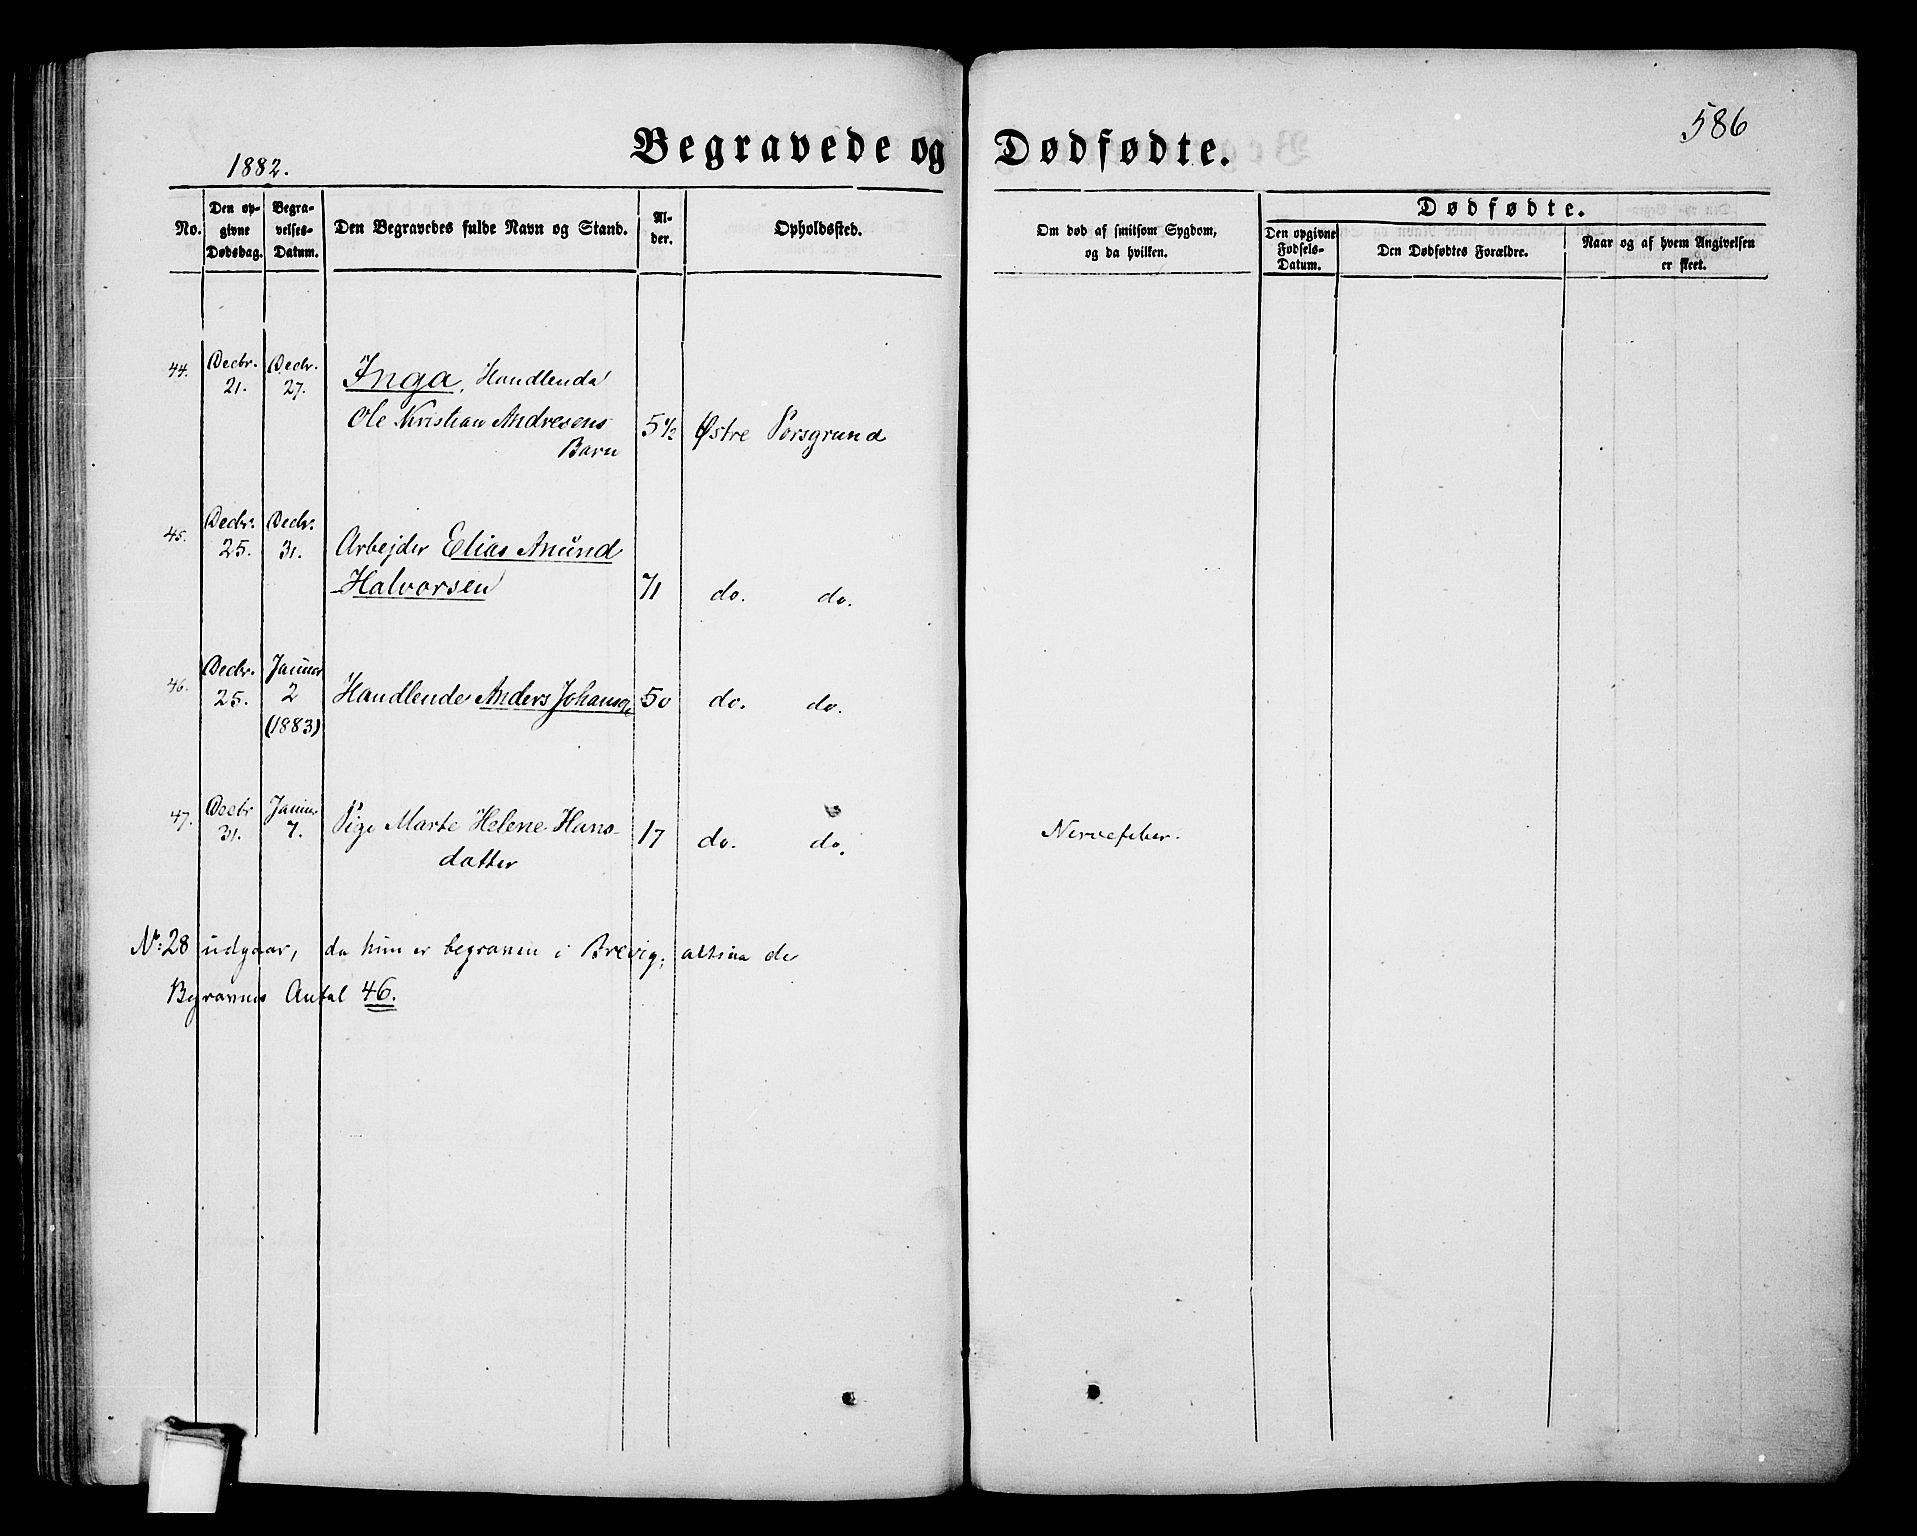 586
Begravede og Dødfødte.
1882.
No.
Den op-
givne
Dødsdag.
Begra-
velses-
Datum.
Den Begravedes fulde Navn og Stand.
Al-
der.
Opholdssted.
Om død af smitsom Sygdom,
og da hvilken.
Dødfødte.
Den opgivne
Fødsels-
Datum.
Den Dødfødtes Forældre.
Naar og af hvem Angivelsen
er skeet.
44. Decbr. Decbr. Inga, Handlende
21. 27.
Ole Kristian Andresens 5 1/2 Østre Porsgrund
Barn
45. Decbr. Decbr.
25. 31. Arbejder Elias Anund
Halvorsen 71 do. do.
46. Decbr. Januar
25. 2 Handlende Anders Johansen 50 do. do.
(1883)
47. Decbr Januar
31. 7. Pige Marte Helene Hans- 17 do. do. Nervefeber.
datter
No: 28 udgaar, da hun er begraven i Brevig; altsaa de
Begravnes Antal 46.